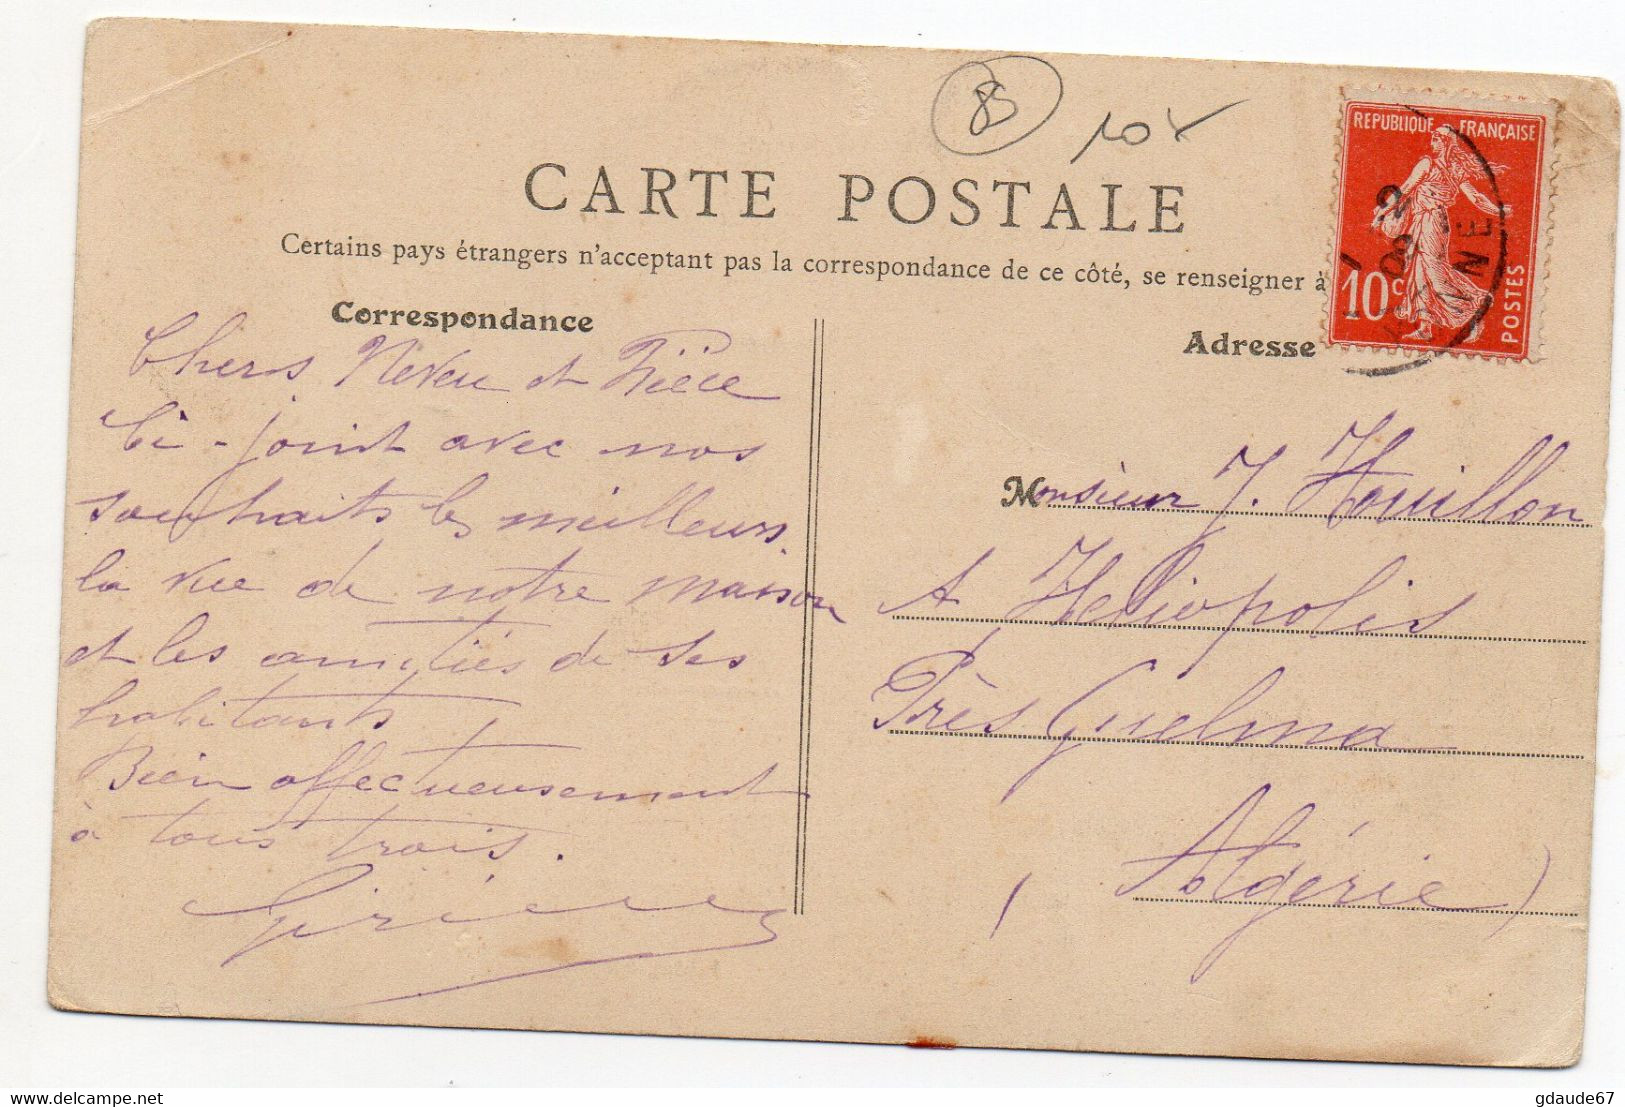 85
10x
REPUBLIQUE FRANÇAISE
10c
POSTES
CARTE POSTALE
Certains pays étrangers n'acceptant pas la correspondance de ce côté, se renseigner à
Correspondance
Chers Neveu et Nièce
Ci-joint avec nos
souhaits les meilleurs
la vue de notre maison
et les amitiés de ses
habitants
Bien affectueusement
à tous trois.
Adresse
Monsieur J. Houillon
A Heliopolis
Près Guelma
(Algérie)
delcampe.net
gdaude67